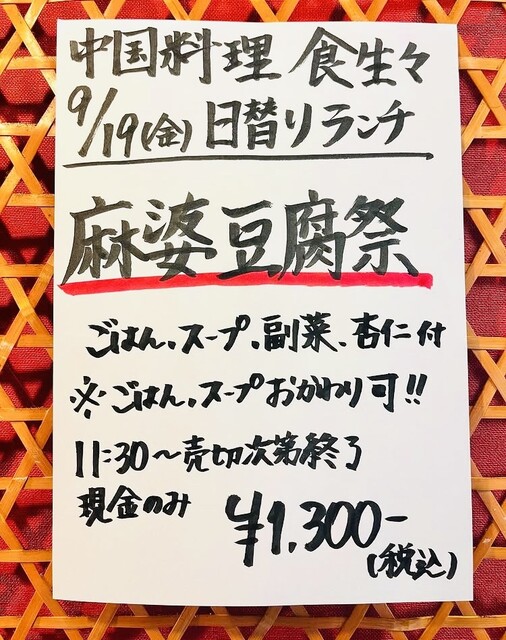 中国料理 食生々
9/19(金) 日替りランチ
麻婆豆腐祭
ごはん、スープ、副菜、杏仁付
※ごはん、スープおかわり可!!
11:30〜売切次第終了
現金のみ
¥1,300-
(税込)